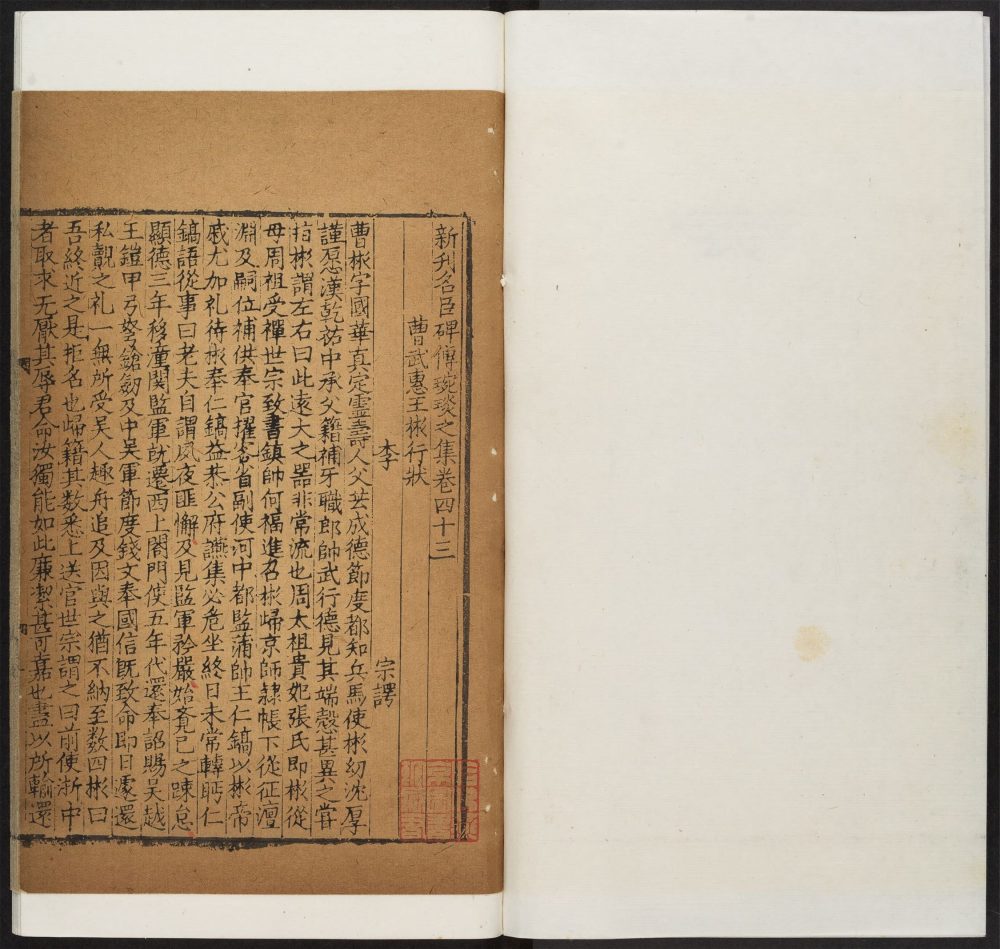 新刊名臣碑傳琬琰之集卷四十三
曹武惠王彬行狀
李 宗諤
曹彬字國華真定靈壽人父芸成德節度都知兵馬使彬幼沈厚
謹愿漢乾祐中承父籍補牙職郎帥武行德見其端慤甚異之甞
指彬謂左右曰此遠大之器非常流也周太祖貴妃張氏即彬從
母周祖受禪世宗致書鎮帥何福進召彬歸京師隷帳下從征澶
淵及嗣位補供奉官擢客省副使河中都監蒲帥王仁鎬以彬帝
戚尤加礼待彬奉仁鎬益恭公府讌集必危坐終日未常轉眄仁
鎬語從事曰老夫自謂夙夜匪懈及見監軍矜嚴始覺己之踈怠
顯德三年移潼関監軍就遷西上閤門使五年代還奉詔賜吳越
王鎧甲弓弩鎗劒及中吳軍節度錢文奉國信旣致命即日遽還
私覿之礼一無所受吳人趣舟追及因與之猶不納至数四彬曰
吾終近之是拒名也歸籍其数悉上送官世宗謂之曰前使浙中
者取求无厭其辱君命汝獨能如此廉潔甚可嘉也盡以所輸還